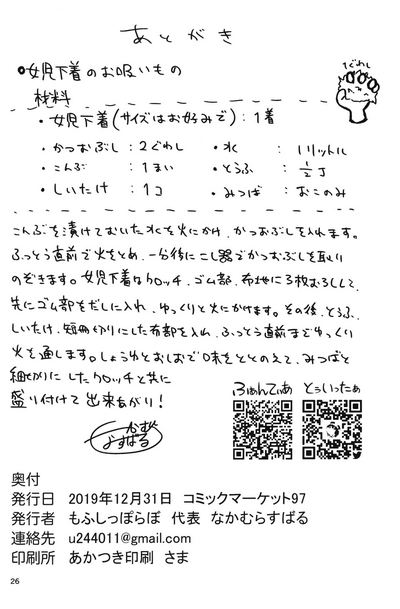 あとがき
1ぐわし
•女児下着のお吸いもの
材料
・女児下着(サイズはお好みで):1着
・かつおぶし:2ぐわし ・水 :1リットル
・こんぶ :1まい ・とうふ :1/2丁
・しいたけ :1コ ・みつば :おこのみ
こんぶを漬けておいた水を火にかけ、かつおぶしを入れます。
ふっとう直前で火をとめ、一分後にこし器でかつおぶしを取り
のぞきます。女児下着はクロッチ、ゴム部、布地に3枚おろしして、
先にゴム部をだしに入れ、ゆっくりと火にかけます。その後、とうふ、
しいたけ、短冊切りにした布部を入れ、ふっとう直前までゆっくり
火を通します。しょうゆとおしおで味をととのえて、みつばと
細切りにしたクロッチと共に
盛り付けて出来あがり!
ふぁんてぃあ とぅいったぁ
なかむら
すばる
奥付
発行日 2019年12月31日 コミックマーケット97
発行者 もふしっぽらぼ 代表 なかむらすばる
連絡先 u244011@gmail.com
印刷所 あかつき印刷 さま
26